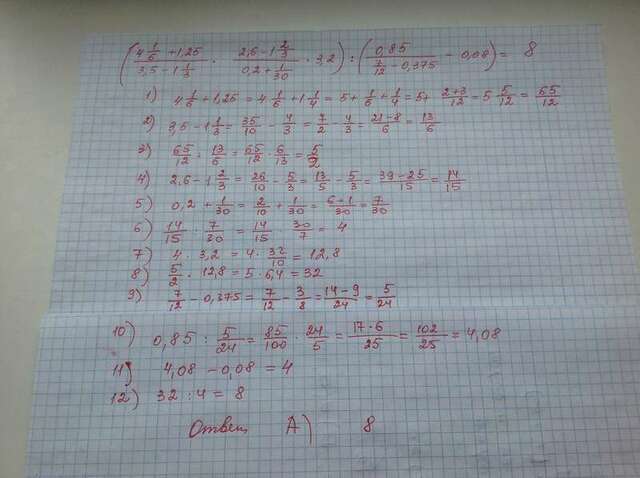 (4 1/6 + 1,25 / 3,5 - 1 1/3 · 2,6 - 1 2/3 / 0,2 + 1/30 · 3,2) : (0,85 / 7/12 - 0,375 - 0,08) = 8
1) 4 1/6 + 1,25 = 4 1/6 + 1 1/4 = 5 + 1/6 + 1/4 = 5 + 2+3/12 = 5 5/12 = 65/12
2) 3,5 - 1 1/3 = 35/10 - 4/3 = 7/2 - 4/3 = 21-8/6 = 13/6
3) 65/12 : 13/6 = 65/12 · 6/13 = 5/2
4) 2,6 - 1 2/3 = 26/10 - 5/3 = 13/5 - 5/3 = 39-25/15 = 14/15
5) 0,2 + 1/30 = 2/10 + 1/30 = 6+1/30 = 7/30
6) 14/15 : 7/30 = 14/15 · 30/7 = 4
7) 4 · 3,2 = 4 · 32/10 = 12,8
8) 5/2 · 12,8 = 5 · 6,4 = 32
9) 7/12 - 0,375 = 7/12 - 3/8 = 14-9/24 = 5/24
10) 0,85 : 5/24 = 85/100 · 24/5 = 17·6/25 = 102/25 = 4,08
11) 4,08 - 0,08 = 4
12) 32 : 4 = 8
Ответ А) 8